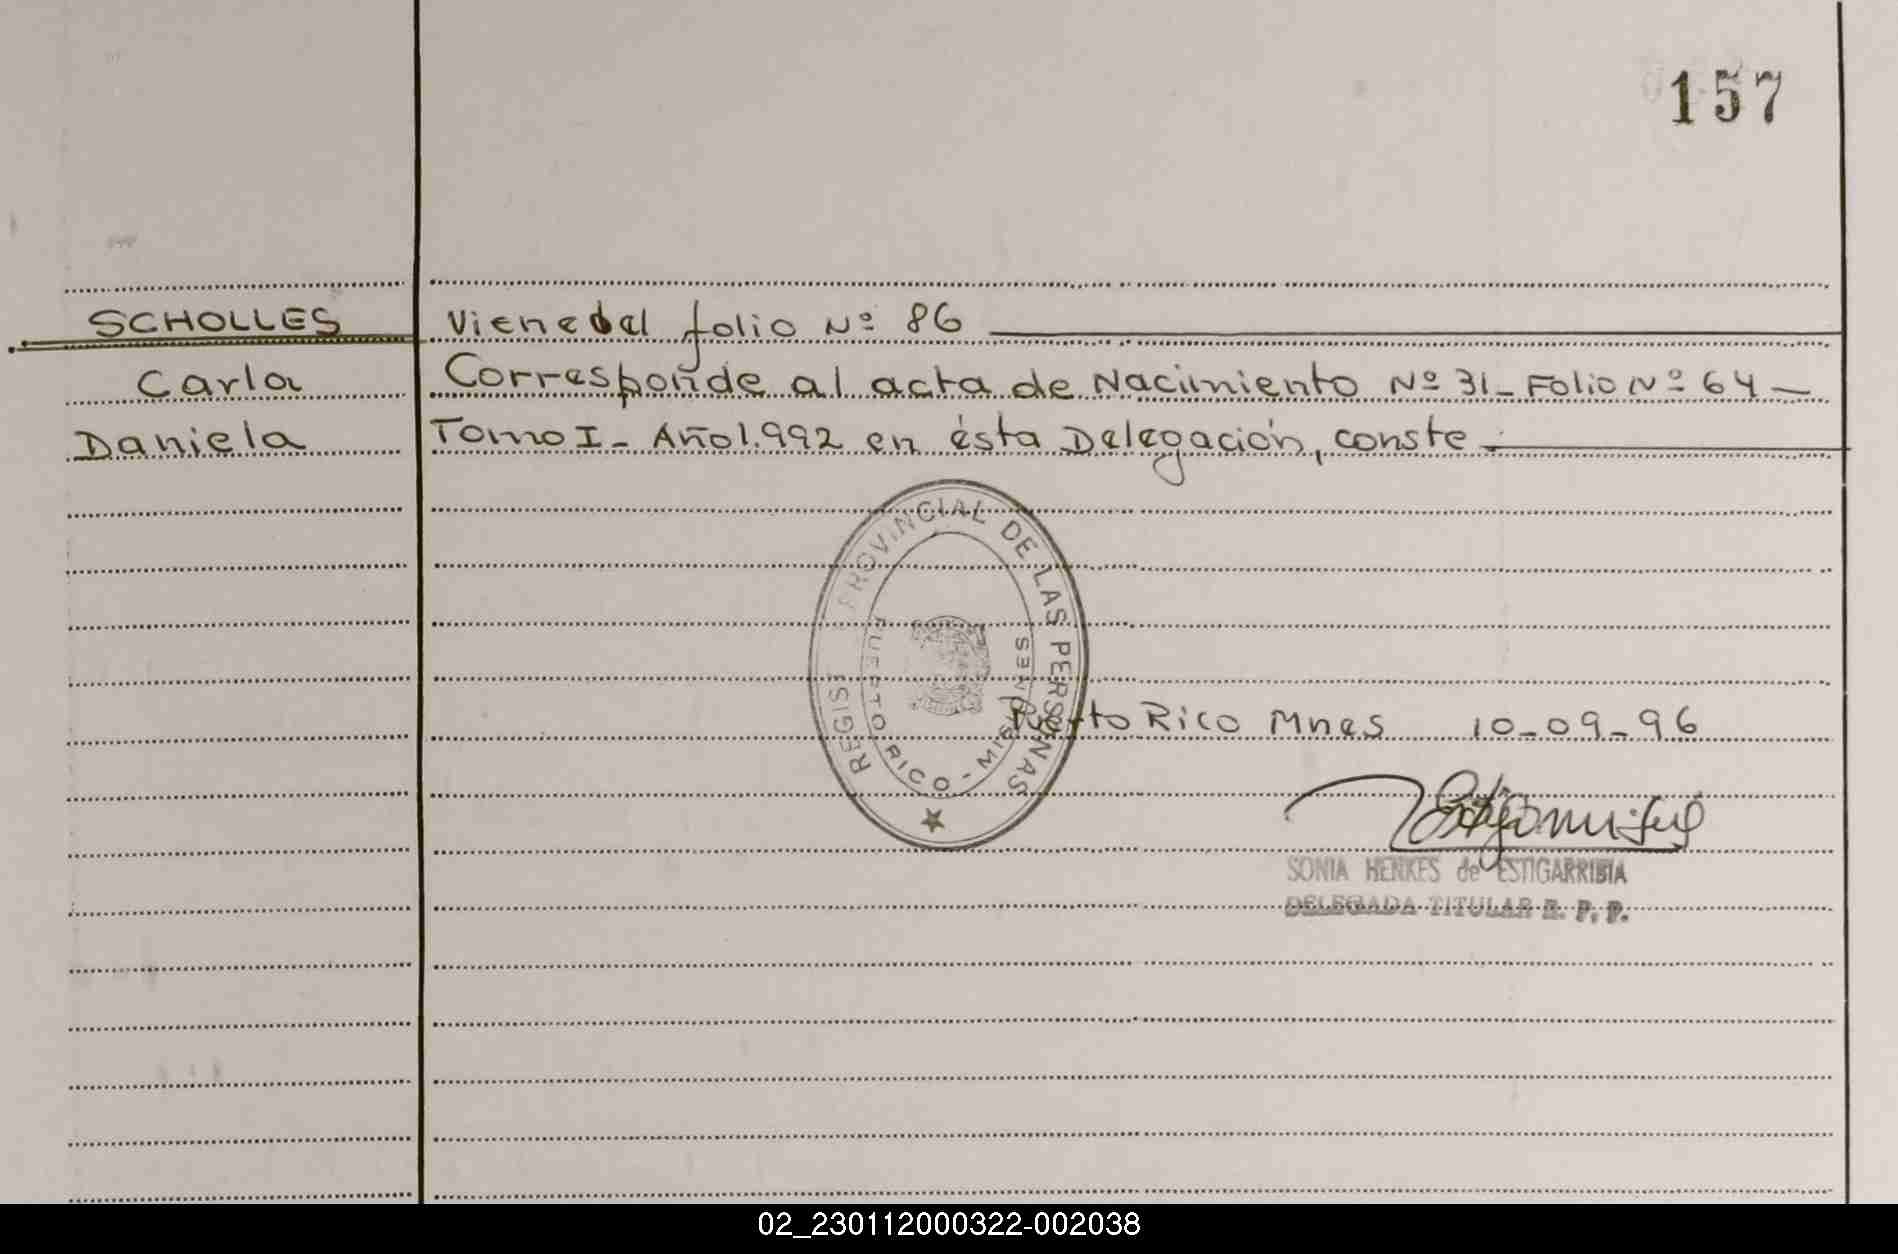 157
SCHOLLES
Carla
Daniela
Viene del folio Nº 86
Corresponde al acta de Nacimiento Nº 31_ Folio Nº 64 —
Tomo I_ Año 1.992 en ésta Delegación, conste_
REGIST PROVINCIAL DE LAS PERSONAS
PUERTO RICO - MISIONES
Puerto Rico Mnes 10_09_96
SONIA HENKES de ESTIGARRIBIA
DELEGADA TITULAR R. P. P.
02_230112000322-002038